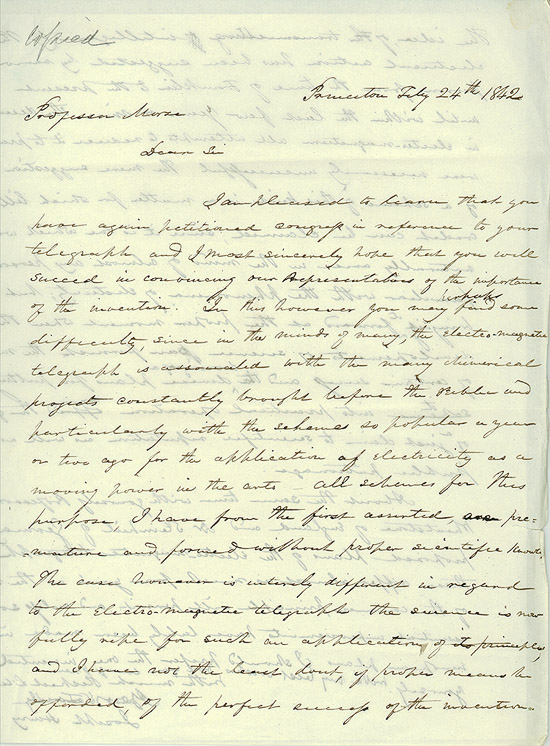 Copied
Princeton Feby 24th 1842
Professor Morse
Dear Sir
I am pleased to learn that you
have again petitioned congress in reference to your
telegraph and I most sincerely hope that you will
succeed in convincing our Representatives of the importance
of the invention. In this however you may perhaps find some
difficulty, since in the minds of many, the electro-magnetic
telegraph is associated with the many chimerical
projects constantly brought before the Public and
particularly with the schemes so popular a year
or two ago for the application of electricity as a
moving power in the arts - all schemes for this
purpose, I have from the first asserted are pre-
-mature and formed without proper scientific knowle.
The case however is entirely different in regard
to the Electro-magnetic telegraph the science is now
fully ripe for such an application of its principles
and I have not the least dout, if proper means be
afforded, of the perfect success of the invention-